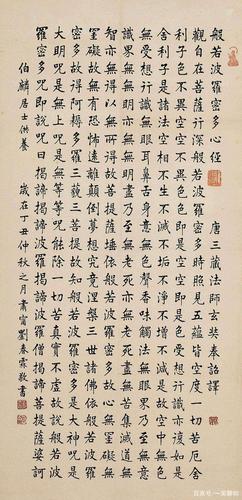 般若波羅蜜多心經 唐三藏法師玄奘奉詔譯
觀自在菩薩行深般若波羅蜜多時照見五蘊皆空度一切苦厄舍
利子色不異空空不異色色即是空空即是色受想行識亦復如是
舍利子是諸法空相不生不滅不垢不淨不增不減是故空中無色
無受想行識無眼耳鼻舌身意無色聲香味觸法無眼界乃至無意
識界無無明亦無無明盡乃至無老死亦無老死盡無苦集滅道無
智亦無得以無所得故菩提薩埵依般若波羅蜜多故心無罣礙無
罣礙故無有恐怖遠離顛倒夢想究竟涅槃三世諸佛依般若波羅
蜜多故得阿耨多羅三藐三菩提故知般若波羅蜜多是大神咒是
大明咒是無上咒是無等等咒能除一切苦真實不虛故說般若波
羅蜜多咒即說咒曰揭諦揭諦波羅揭諦波羅僧揭諦菩提薩婆訶
伯麟居士供養 歲在丁丑仲秋之月肅甯劉春霖敬書